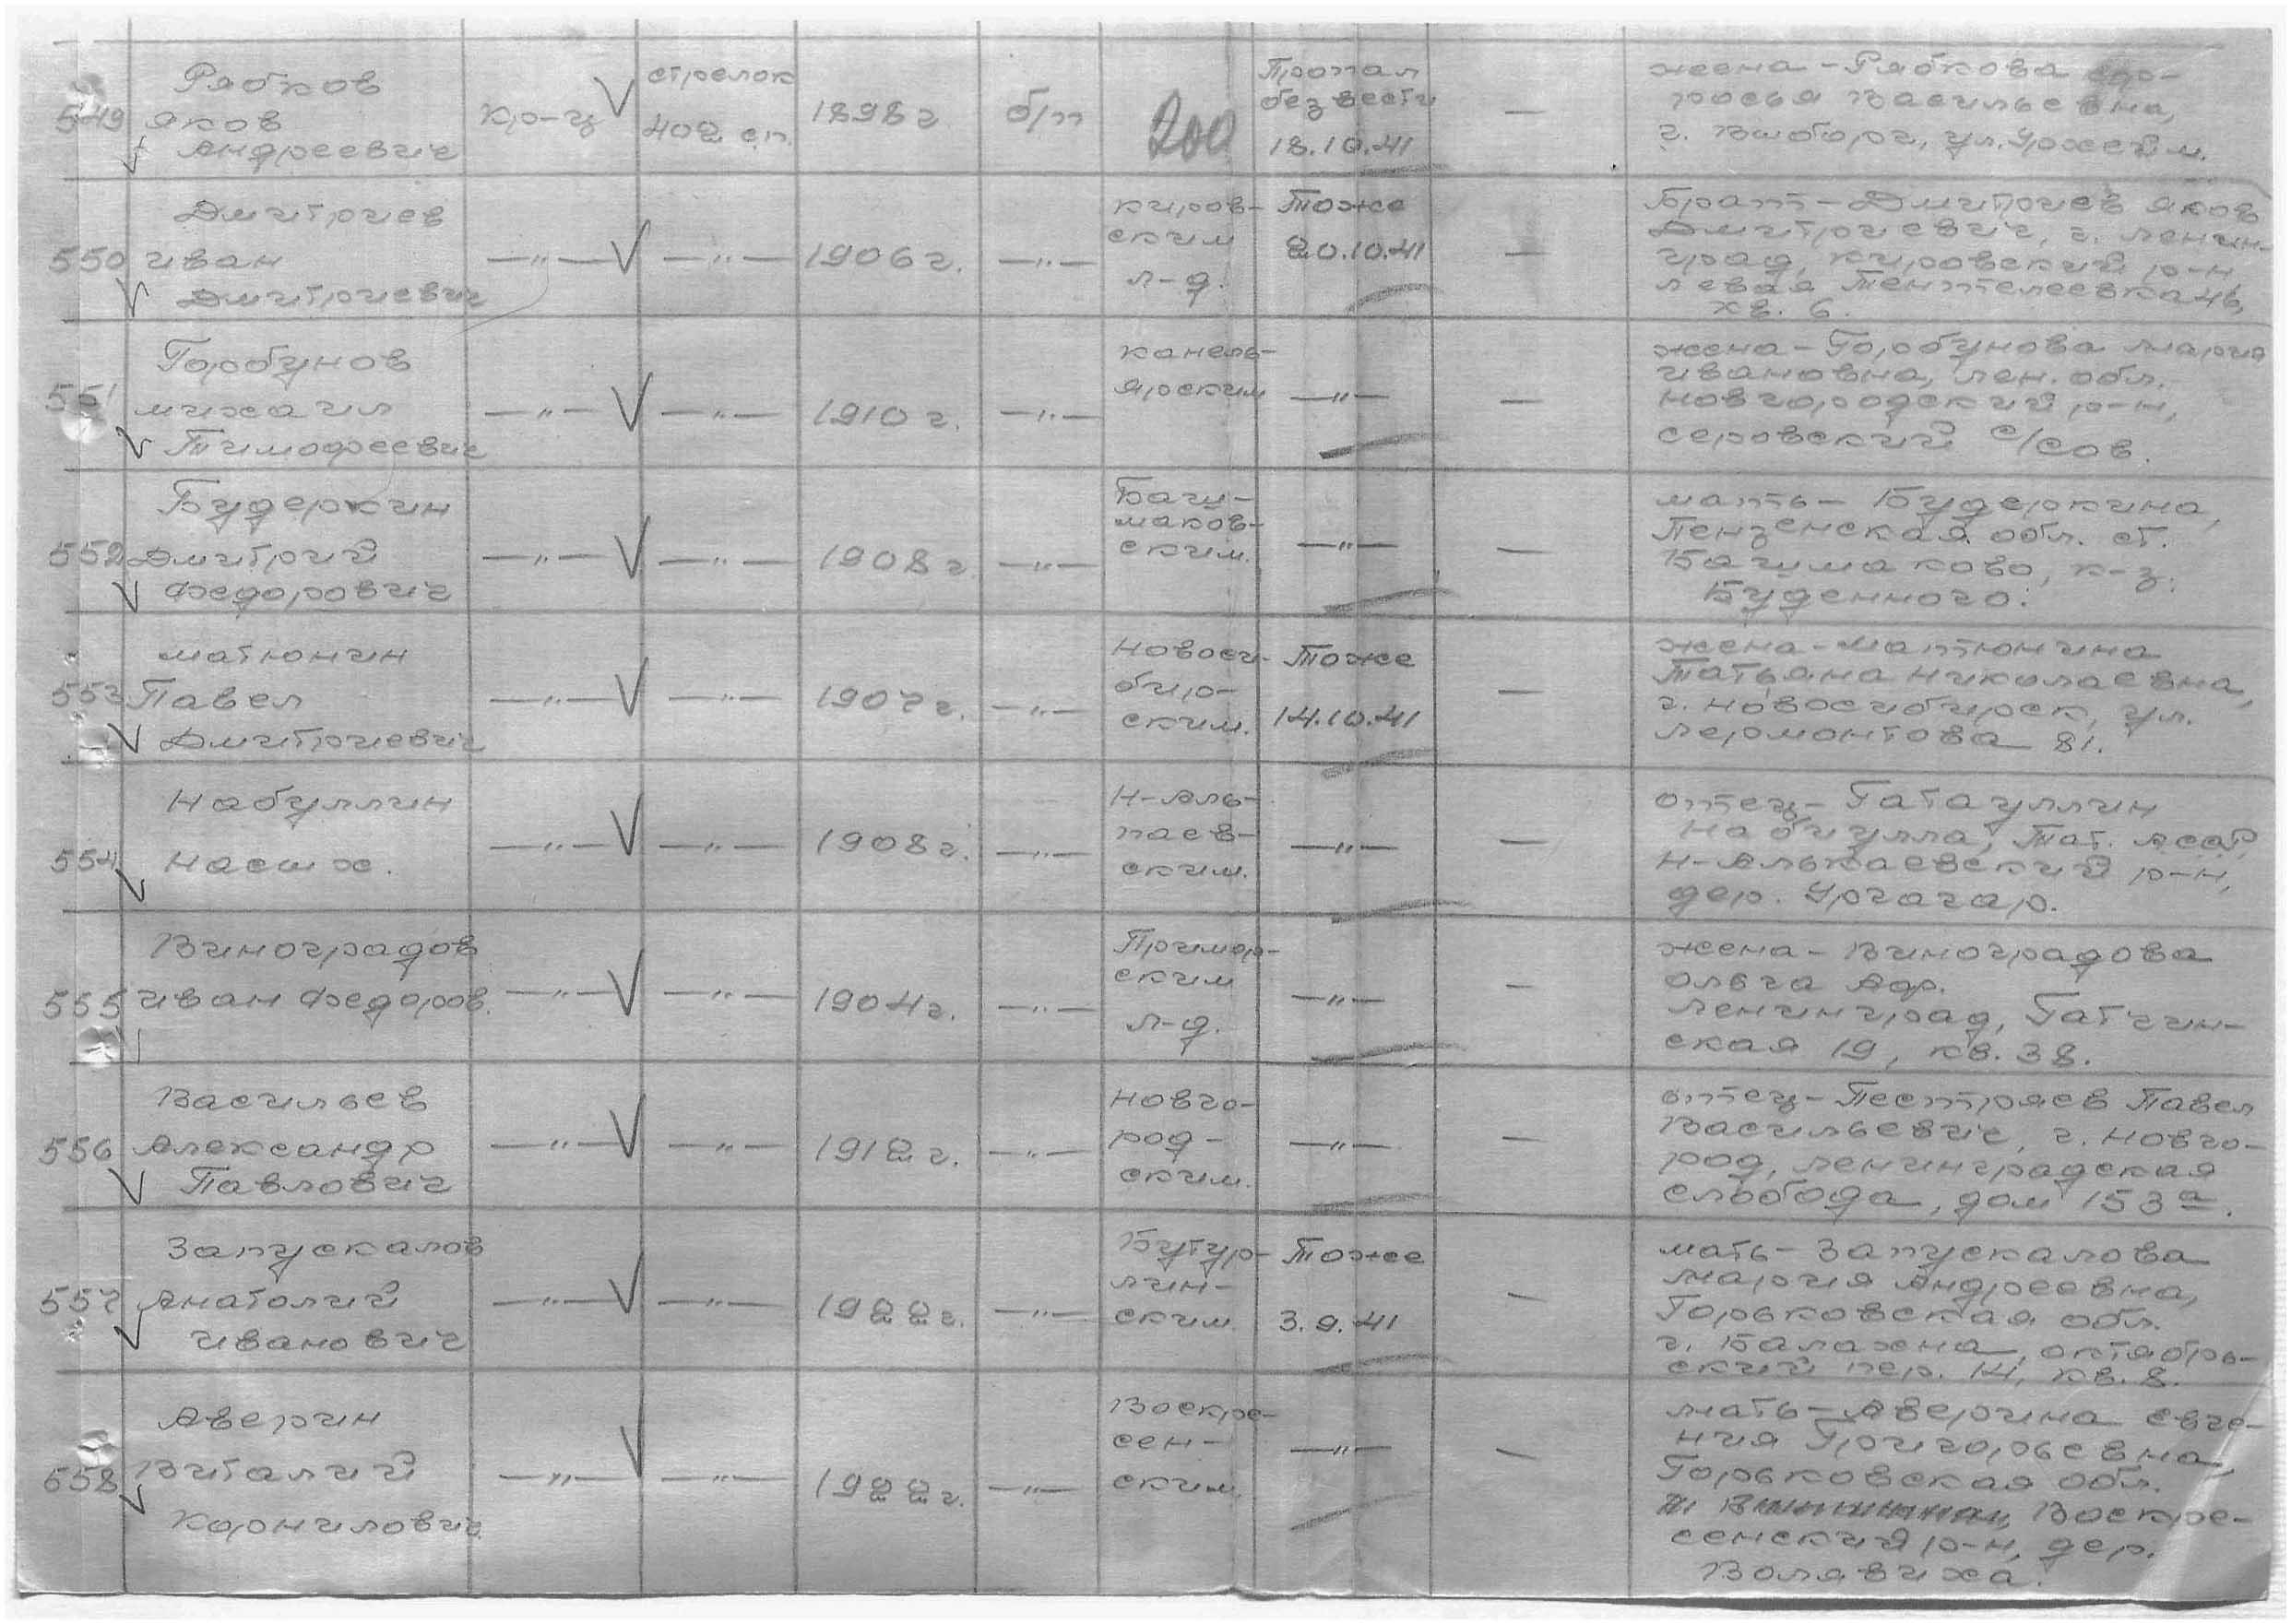 549
Рябков
Яков
Андреевич
кр-ц
стрелок
402 сп.
1898 г
б/п
200
Пропал
без вести
18.10.41
—
жена - Рябкова
Васильевна,
г. Выборг, ул.
550
Дмитриев
Иван
Дмитриевич
—"—
—"—
1906 г.
—"—
Киров-
ским
л-д.
Тоже
20.10.41
—
Брат - Дмитриев Яков
Дмитриевич, г. Ленин-
град, Кировский р-н
левая Тентелеевка 46,
кв. 6.
551
Горбунов
Михаил
Тимофеевич
—"—
—"—
1910 г.
—"—
Канель-
ярским
—"—
—
жена - Горбунова Мария
Ивановна, лен. обл.
Новгородский р-н,
серовский с/сов.
552
Будеркин
Дмитрий
Федорович
—"—
—"—
1908 г
—"—
Башма-
ков-
ским.
—"—
—
мать - Будеркина,
Пензенская обл. ст.
Башмаково, к-з.
Буденного.
553
Матюнин
Павел
Дмитриевич
—"—
—"—
1907 г.
—"—
Новоси-
бир-
ским.
Тоже
14.10.41
—
жена - Матюнина
Татьяна Николаевна,
г. Новосибирск, ул.
Лермонтова 81.
554
Набуллин
Насых.
—"—
—"—
1908 г.
—"—
Н-Аль-
каев-
ским.
—"—
—
отец - Гатауллин
Набиулла, Тат. АССР,
Н-Алькаевский р-н,
дер. Ургагар.
555
Виноградов
Иван Федоров.
—"—
—"—
1904 г.
—"—
Примор-
ским
л-д.
—"—
—
жена - Виноградова
Ольга Аф.
Ленинград, Гатчин-
ская 19, кв. 38.
556
Васильев
Александр
Павлович
—"—
—"—
1912 г.
—"—
Новго-
род-
ским.
—"—
—
отец - Пестряев Павел
Васильевич, г. Новго-
род, Ленинградская
слобода, дом 153 а.
557
Запускалов
Анатолий
Иванович
—"—
—"—
1922 г.
—"—
Бутур-
лин-
ским
Тоже
3.9.41
—
мать - Запускалова
Мария Андреевна,
Горьковская обл.
г. Балахна, октябрь-
ский пер. 14, кв. 8.
558
Аверин
Виталий
Корнилович
—"—
—"—
1922 г.
—"—
Воскре-
сен-
ским.
—"—
—
мать - Аверина Евге-
ния Григорьевна,
Горьковская обл.
Воскре-
сенский р-н, дер.
Волявиха.